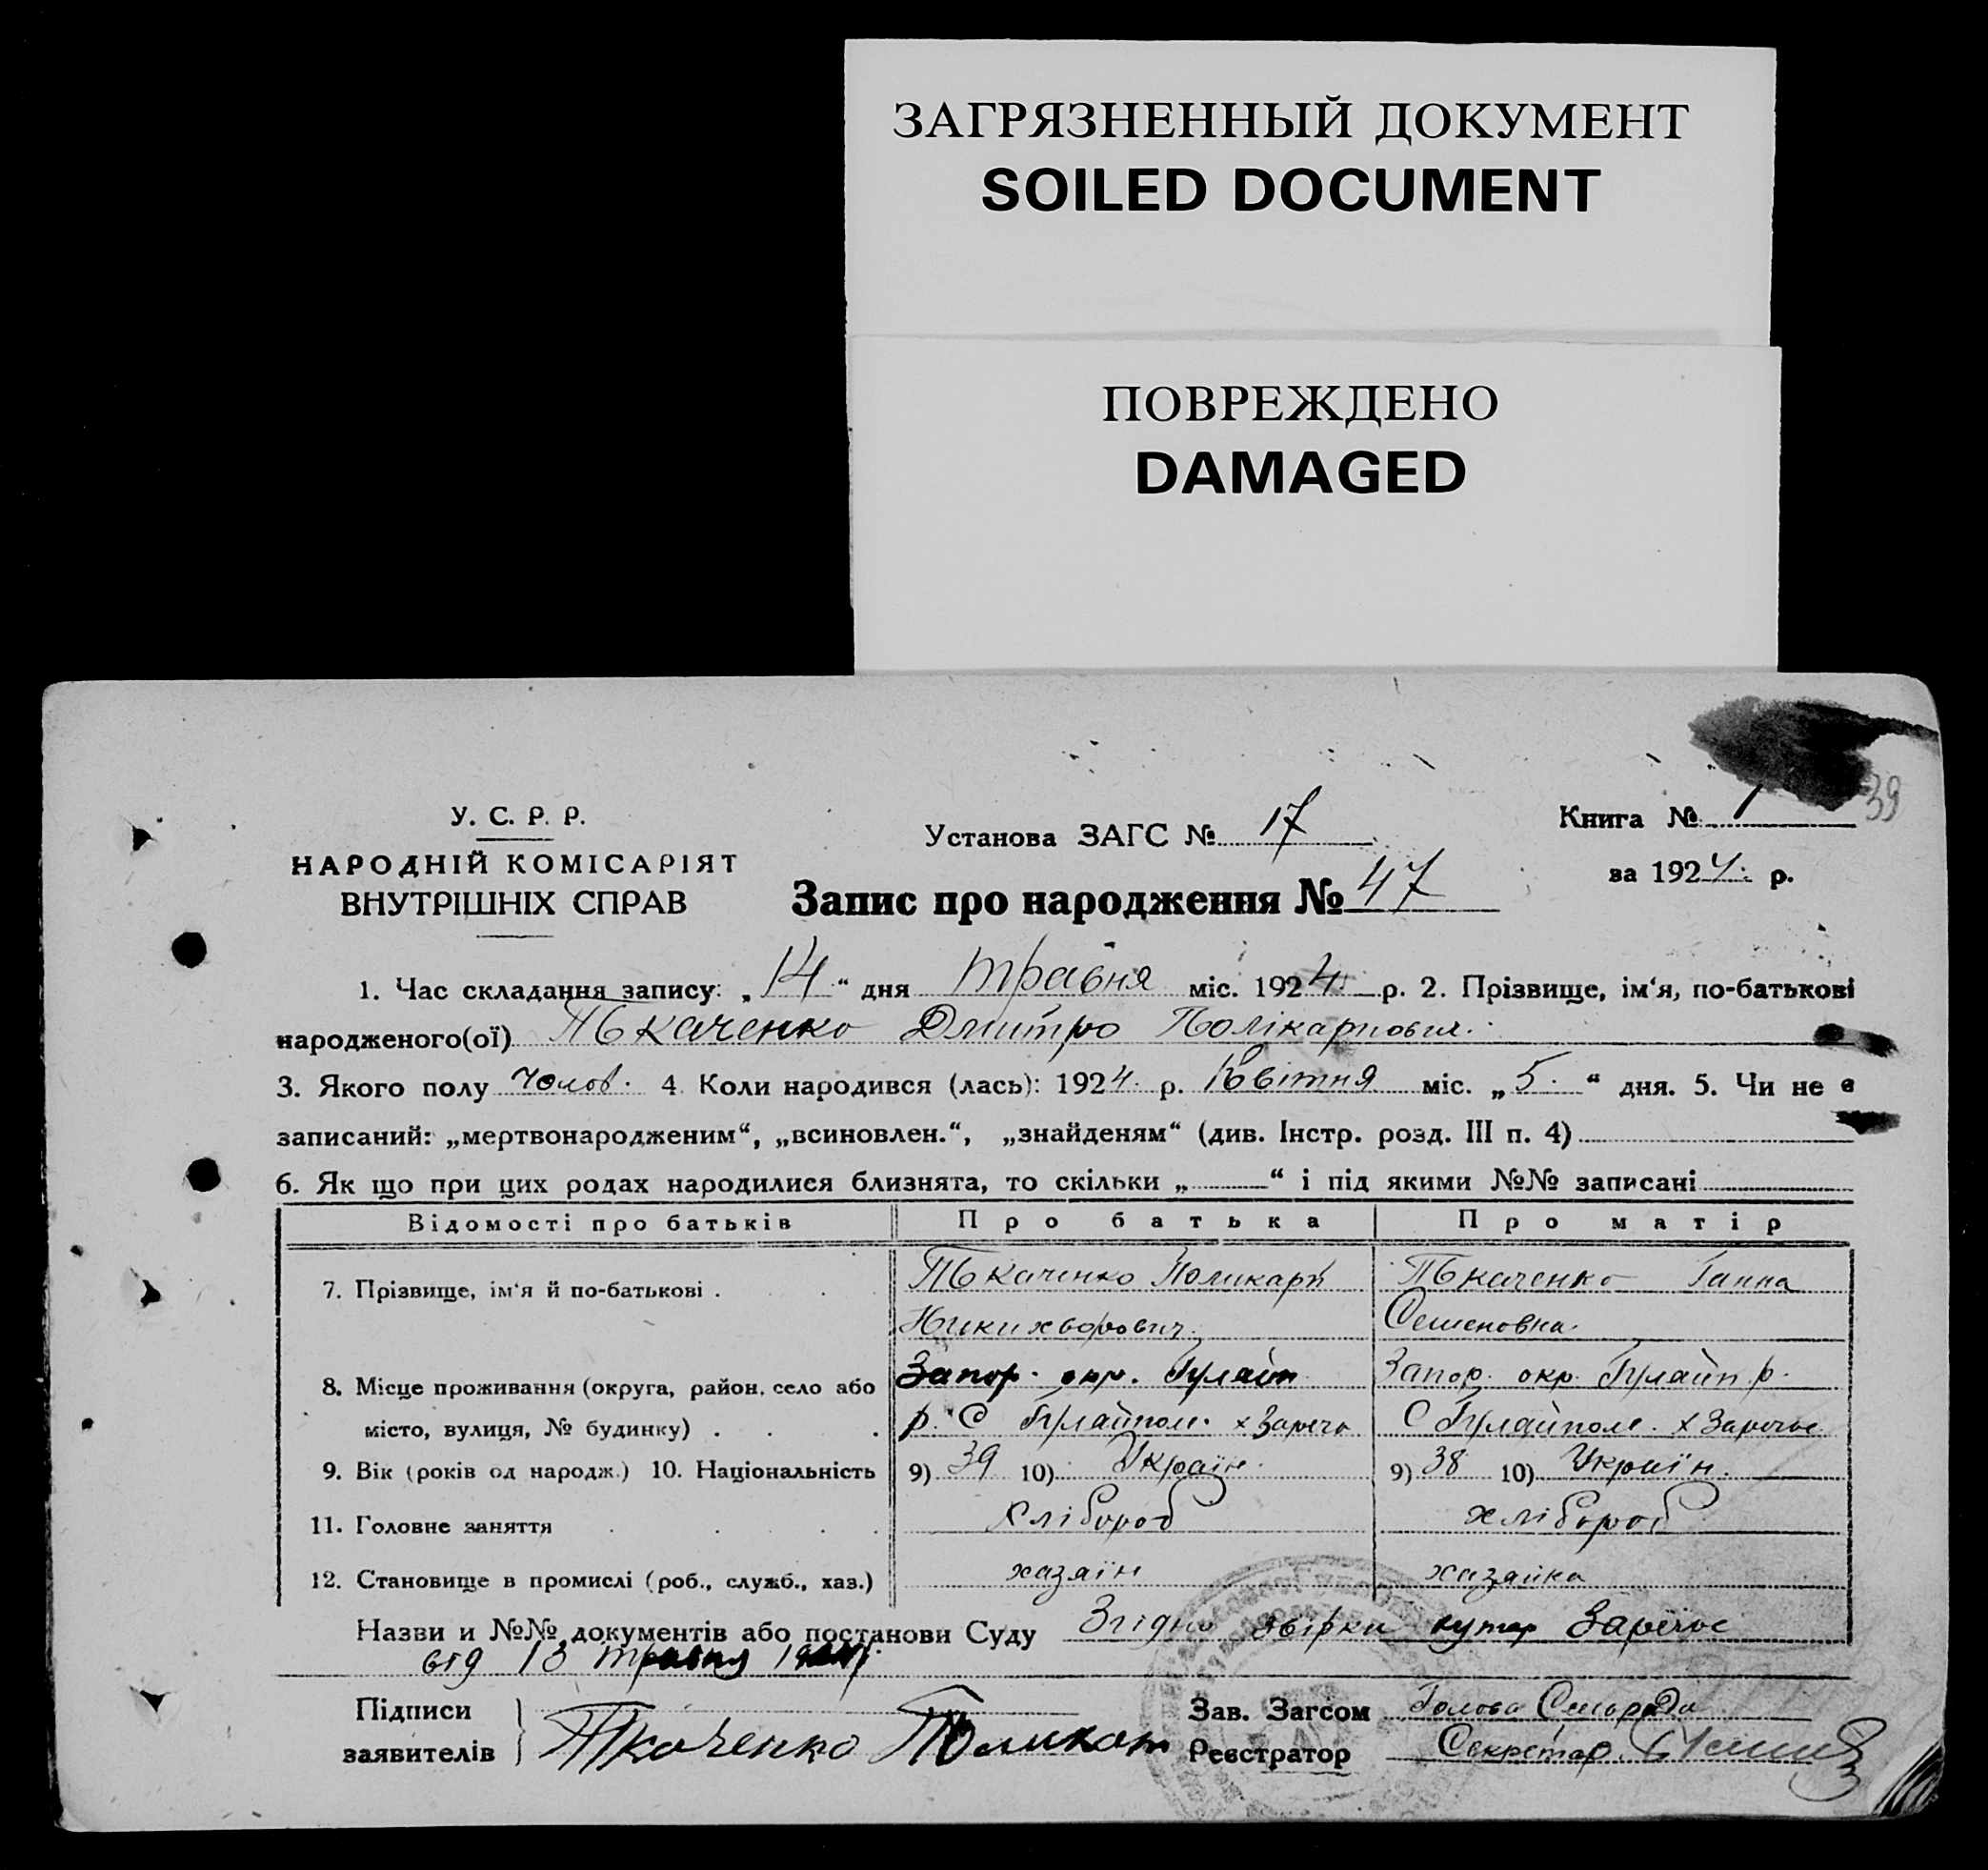 ЗАГРЯЗНЕННЫЙ ДОКУМЕНТ
SOILED DOCUMENT
ПОВРЕЖДЕНО
DAMAGED
39
У. С. Р. Р.
НАРОДНІЙ КОМІСАРІЯТ
ВНУТРІШНІХ СПРАВ
Установа ЗАГС № 17
Запис про народження № 47
Книга № 1
за 1924. р.
1. Час складання запису: „14“ дня травня міс. 1924. р. 2. Прізвище, ім‘я, по-батькові
народженого(ої) Ткаченко Дмитро Полікарпович.
3. Якого полу челов. 4. Коли народився (лась): 1924. р. Квітня міс. „5.“ дня. 5. Чи не є
записаний: „мертвонародженим“, „всиновлен.“, „знайденям“ (див. Інстр. розд. III п. 4)
6. Як що при цих родах народилися близнята, то скільки „ “ і під якими №№ записані
Відомості про батьків Про батька Про матір
7. Прізвище, ім‘я й по-батькові . Ткаченко Поликарп Ткаченко Ганна
Никихворович. Семеновна.
8. Місце проживання (округа, район, село або Запор. окр. Гуляйп Запор. окр. Гуляйп. р.
місто, вулиця, № будинку) . р. С Гуляйполе. х Заречя С Гуляйполе. х Заречье
9. Вік (років од народж.) 10. Національність 9) 39 10) Україн. 9) 38 10) Україн.
11. Головне заняття хлібороб хлібороб
12. Становище в промислі (роб., служб., хаз.) хазяїн хазяйка
Назви и №№ документів або постанови Суду Згідно збірки хутор Заречье
від 13 травня 1924
Підписи
заявителів Ткаченко Поликарп
Зав. Загсом Голова Сельради
Реєстратор Секретар